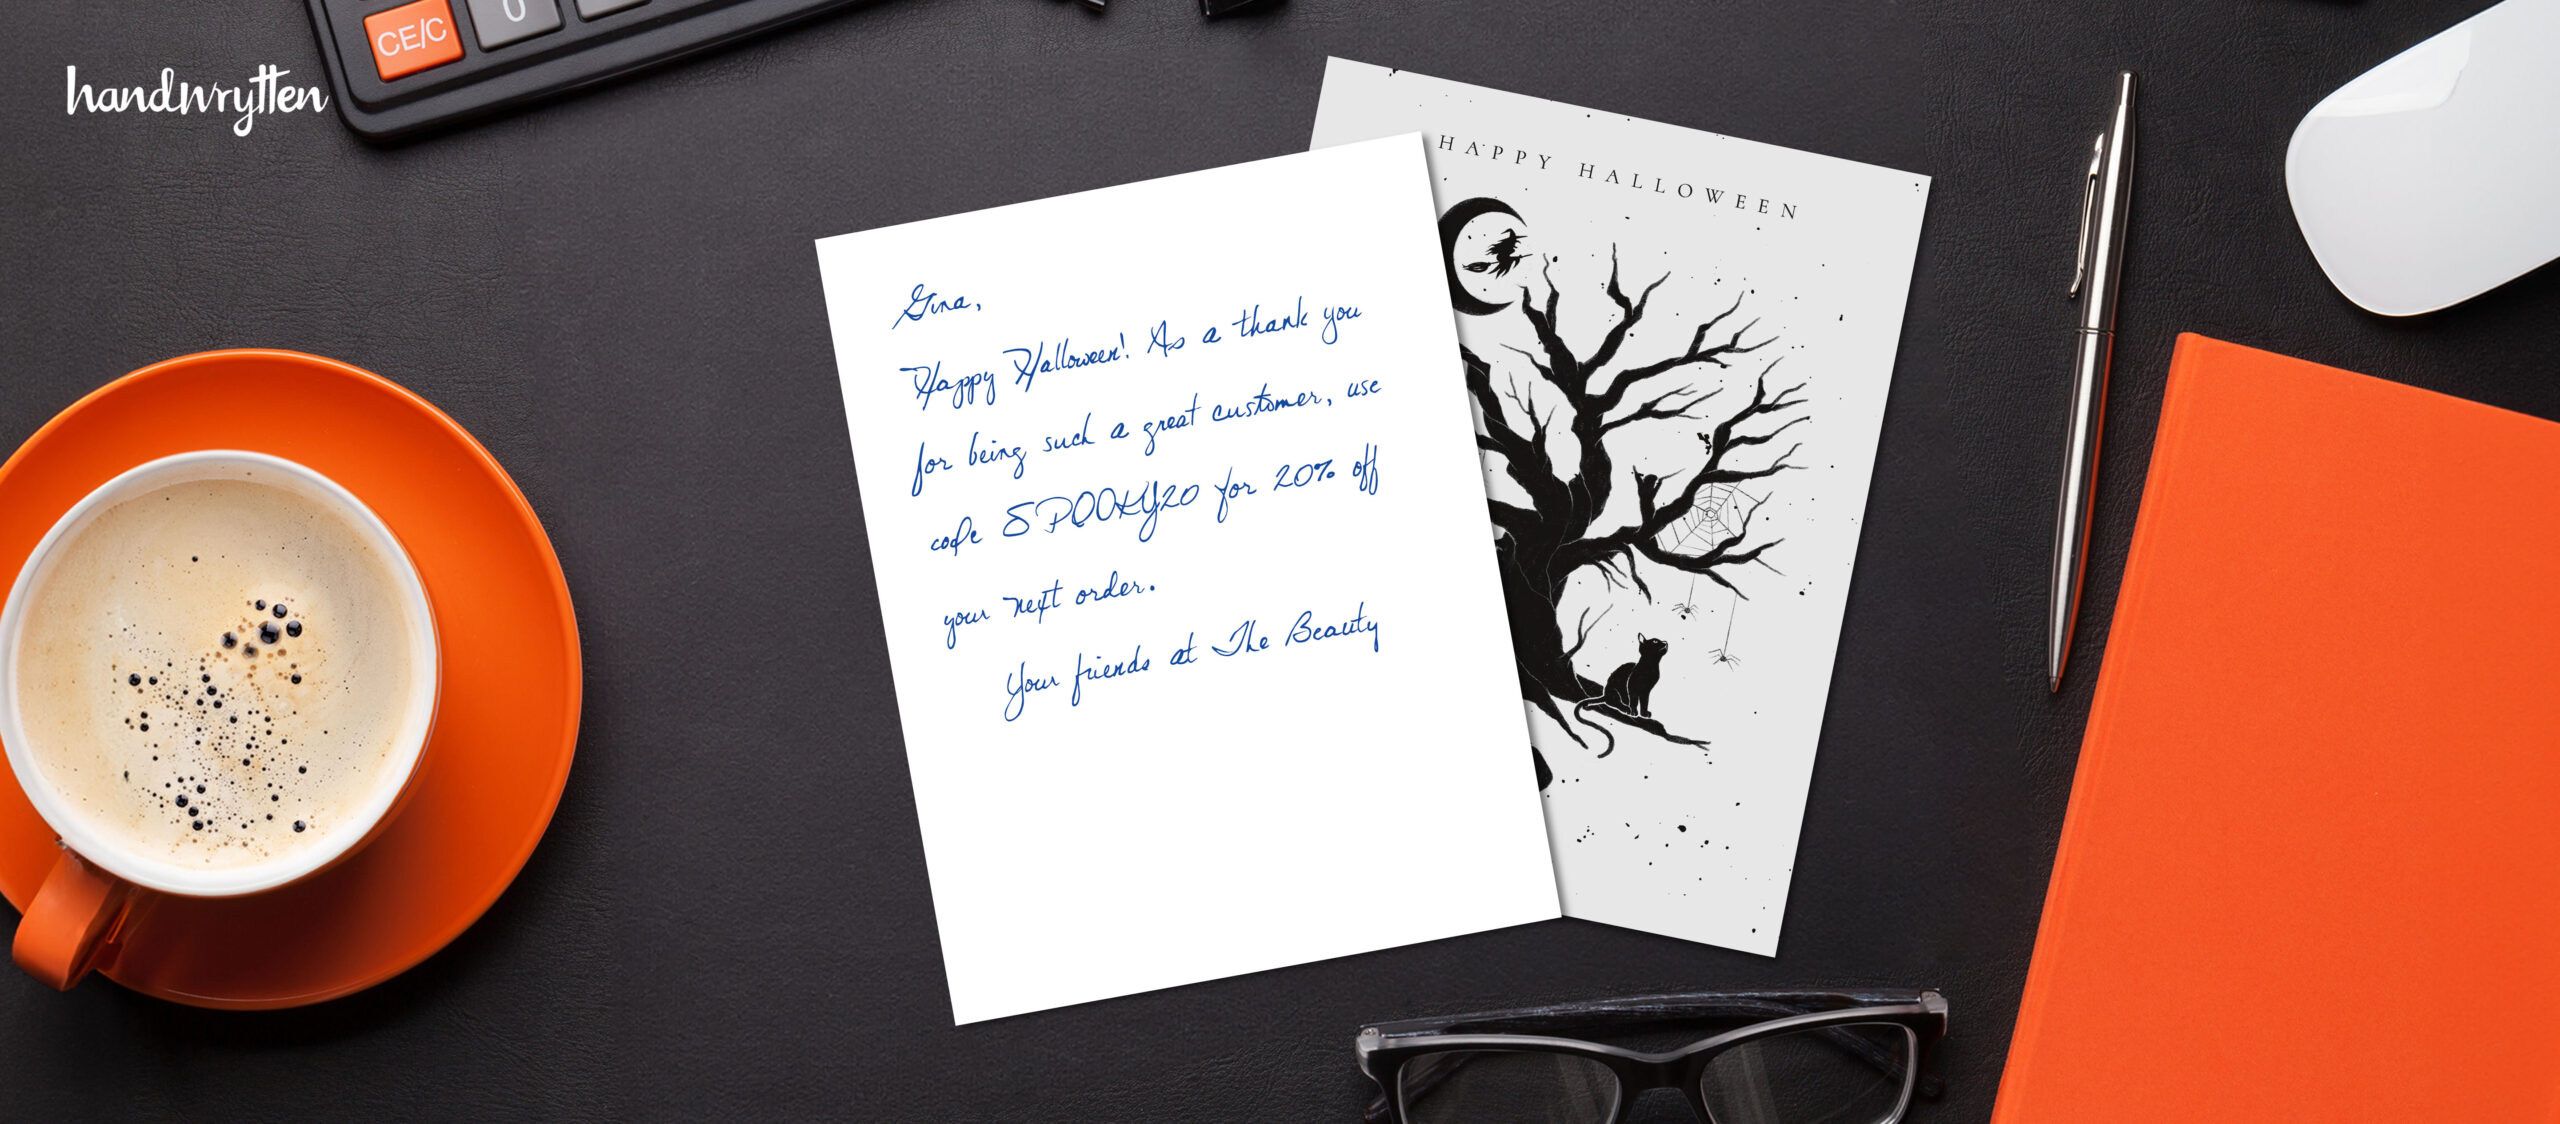 CE/C
0
handwrytten
HAPPY HALLOWEEN
Gina,
Happy Halloween! As a thank you
for being such a great customer, use
code SPOOKY20 for 20% off
your next order.
Your friends at The Beauty